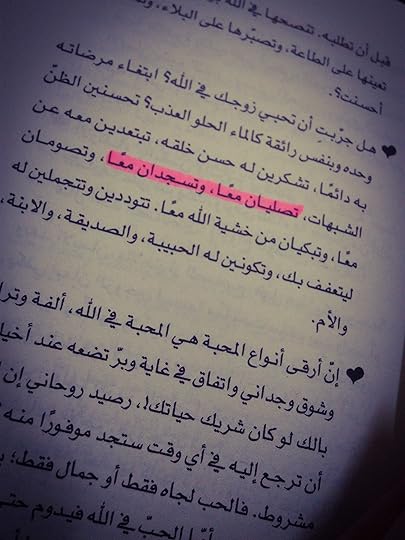 قبل أن تطلبه. تنصحها في الله
تعينها على الطاعة، وتصبّرها على البلاء،
أحسنت؟.
هل جرّبتِ أن تحبي زوجك في الله؟ ابتغاء مرضاته
وحده وبنفس رائقة كالماء الحلو العذب؟ تحسنين الظنّ
به دائمًا، تشكرين له حسن خلقه، تبتعدين معه عن
الشبهات، تصليان معًا، وتسجدان معًا، وتصومان
معًا، وتبكيان من خشية الله معًا. تتوددين وتتجملين له
ليتعفف بك، وتكونين له الحبيبة، والصديقة، والابنة،
والأم.
إنّ أرقى أنواع المحبة هي المحبة في الله، ألفة
وشوق وجداني واتفاق في غاية وبرّ تضعه عند
بالك لو كان شريك حياتك!، رصيد روحاني إن
أن ترجع إليه في أي وقت ستجد موفورًا منه
مشروط. فالحب لجاه فقط أو جمال فقط؛
الحبّ في الله فيدوم حتى